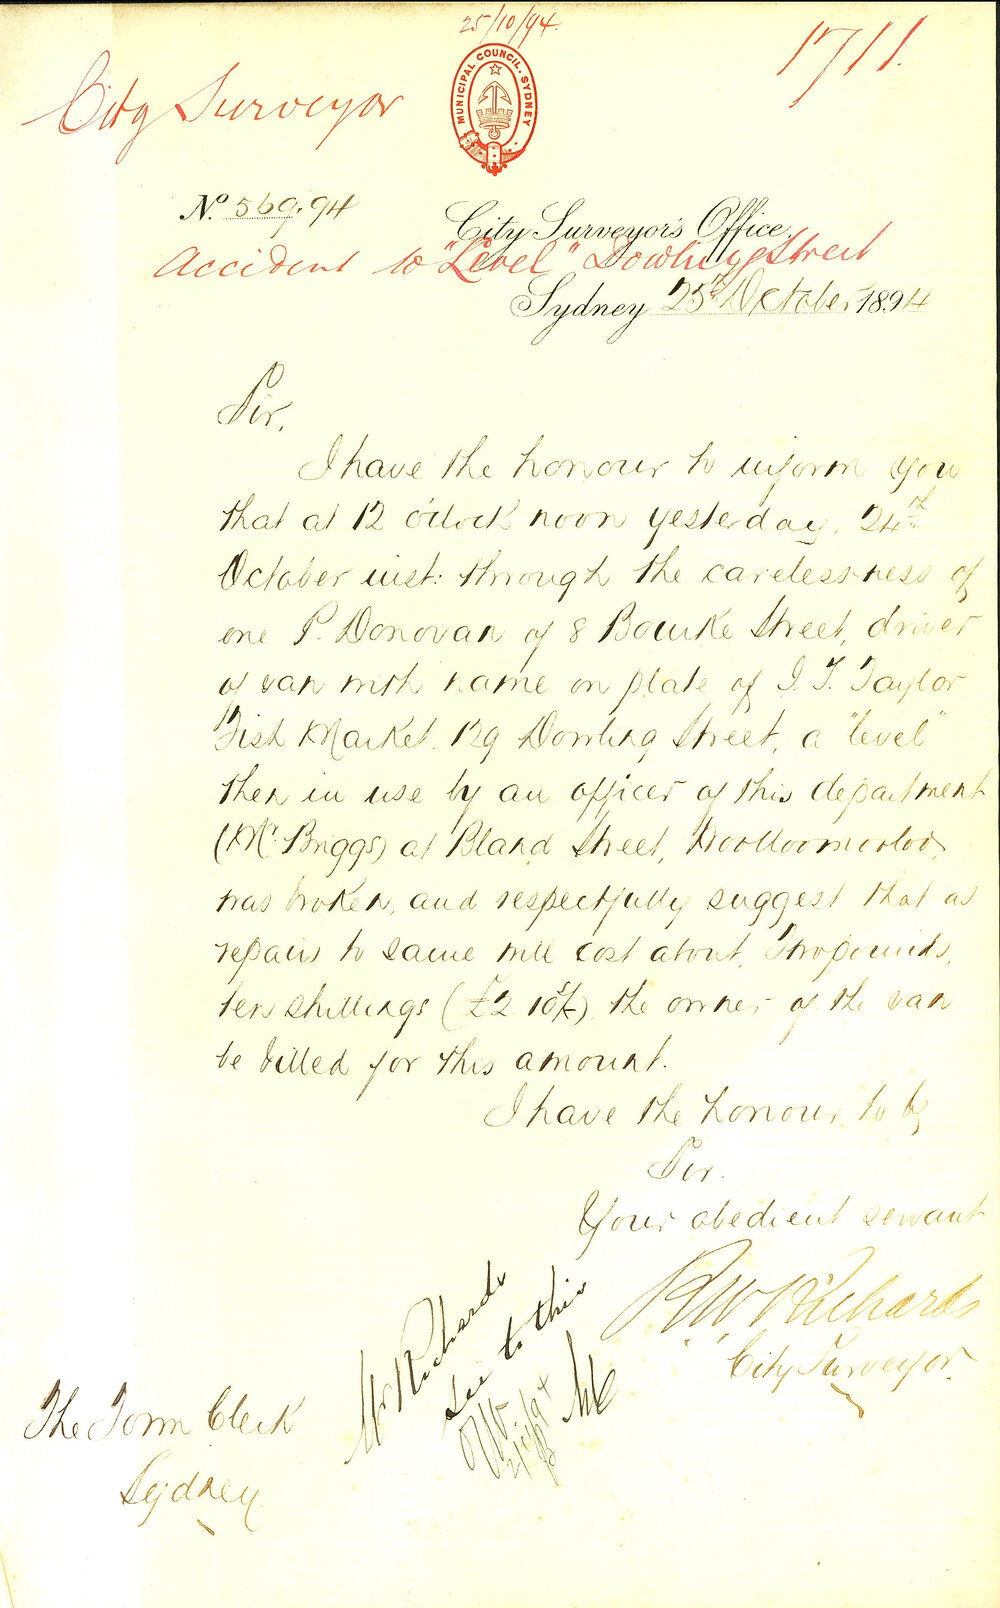 25/10/94.
1711.
City Surveyor
MUNICIPAL COUNCIL. SYDNEY
No. 569.94
City Surveyor's Office,
Accident to "Level" Dowling Street
Sydney 25th October 1894
Sir,
I have the honour to inform you
that at 12 o'clock noon yesterday, 24th
October inst: through the carelessness of
one P. Donovan of 8 Bourke Street, driver
of van with name on plate of J. T. Taylor
Fish Market. 129 Dowling Street, a "level"
then in use by an officer of this department
(Mr. Briggs) at Bland Street, Woolloomooloo,
was broken, and respectfully suggest that as
repairs to same will cost about, Two pounds,
ten shillings (£2 10s/-), the owner of the van
be billed for this amount.
I have the honour, to be
Sir.
Your obedient servant
R. W. Richards
City Surveyor.
Mr Richards
See to this
The Town Clerk
Sydney